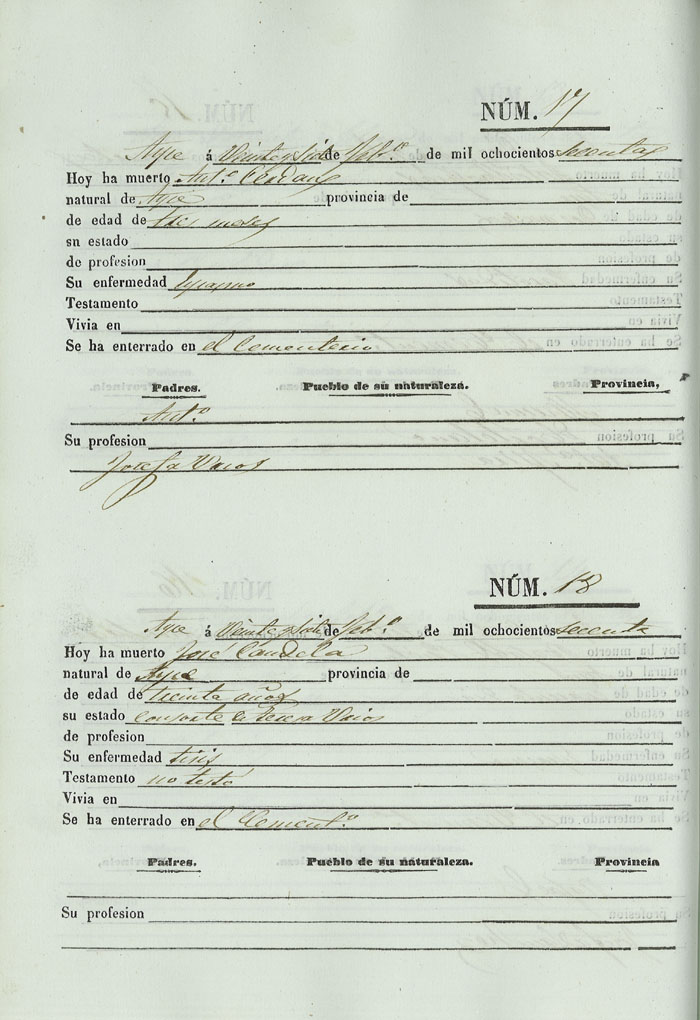 NÚM. 17
Ayre á Veinte y siete de Feb.º de mil ochocientos sesenta
Hoy ha muerto Ant.º
natural de Ayre provincia de
de edad de tres meses
su estado
de profesion
Su enfermedad Espasmo
Testamento
Vivia en
Se ha enterrado en el Cementerio
Padres. Pueblo de su naturaleza. Provincia,
Ant.º
Su profesion
Josefa
NÚM. 18
á Veinte y siete de Feb.º de mil ochocientos sesenta
Hoy ha muerto José Candela
natural de provincia de
de edad de treinta años
su estado consorte de Teresa
de profesion
Su enfermedad tisis
Testamento no testó
Vivia en
Se ha enterrado en el Cement.º
Padres. Pueblo de su naturaleza. Provincia
Su profesion